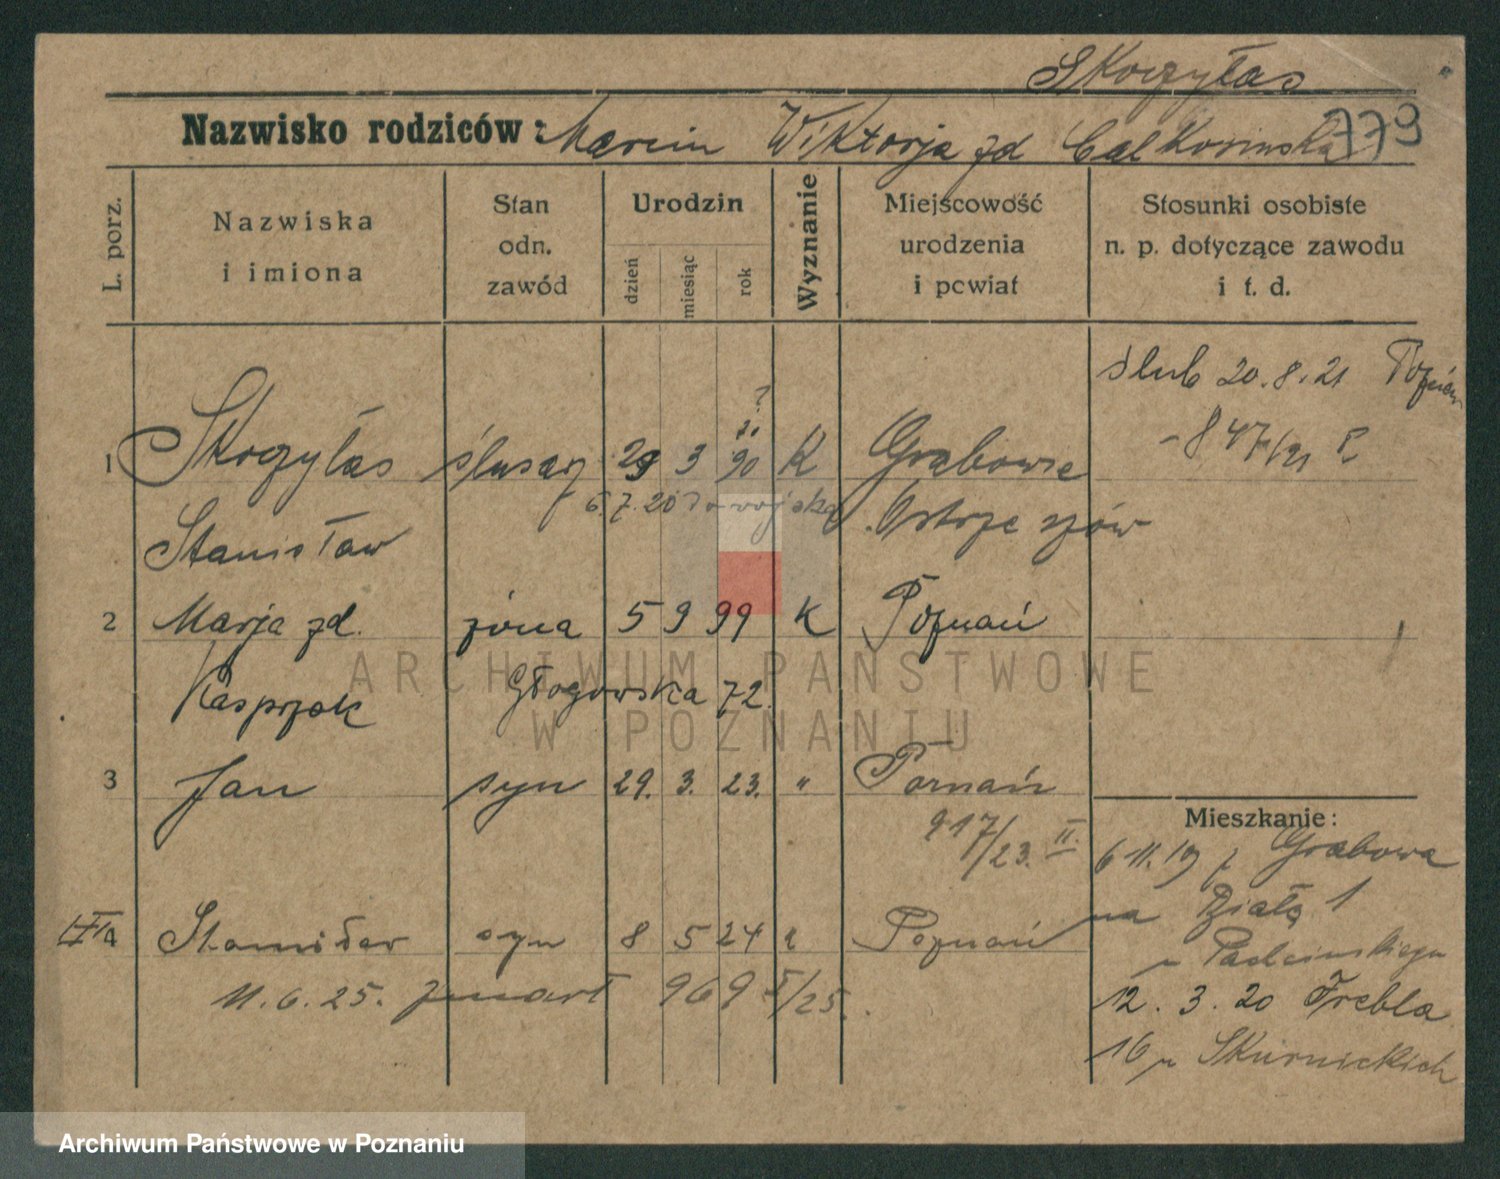 Skoczylas
779
Nazwisko rodziców: Marcin Wiktorja zd Całkosinska
L. porz.
Nazwiska i imiona
Stan odn. zawód
Urodzin
dzień
miesiąc
rok
Wyznanie
Miejscowość urodzenia i powiat
Stosunki osobiste n. p. dotyczące zawodu i t. d.
ślub 20.8.21 Poznań
847/21 P.
?
1 Skoczylas ślusarz 29 3 90 K Grabowie
6.7.20 do wojska Ostrzeszów
Stanisław
2 Marja zd. żona 5 9 99 K Poznań
Kasprzak Głogowska 72.
3 Jan syn 29. 3. 23. " Poznań
917/23. II.
Mieszkanie:
6 11.19 z Grabowa
na Działą 1
4 Stanisław syn 8 5 24 " Poznań
11.6.25. zmarł 969 I/25.
12.3.20 Frebla
16 u Skurnickich
ARCHIWUM PAŃSTWOWE
W POZNANIU
Archiwum Państwowe w Poznaniu